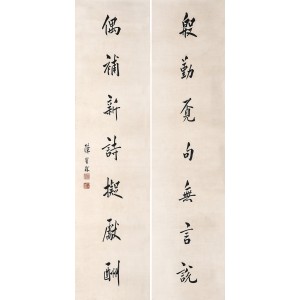 殷勤覓句無言說
偶補新詩擬獻酬